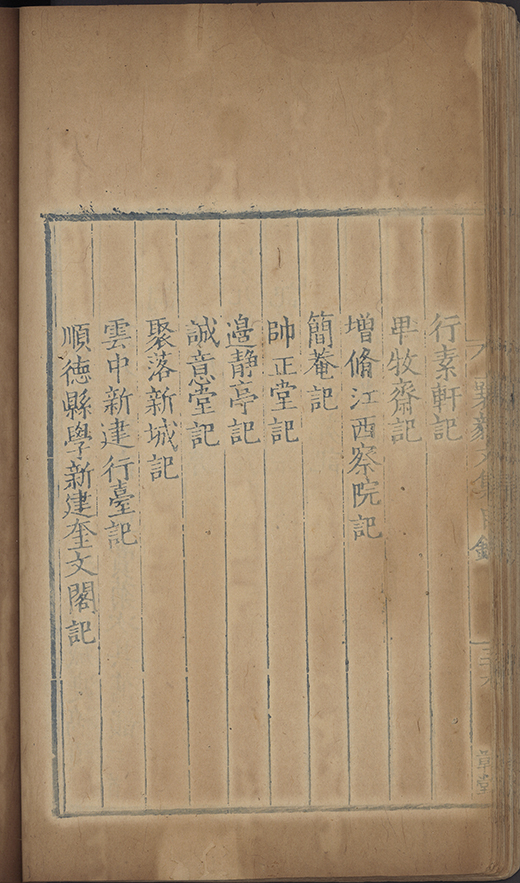 文集目錄
行素軒記
卑牧齋記
增脩江西察院記
簡菴記
帥正堂記
邊靜亭記
誠意堂記
聚落新城記
雲中新建行臺記
順德縣學新建奎文閣記